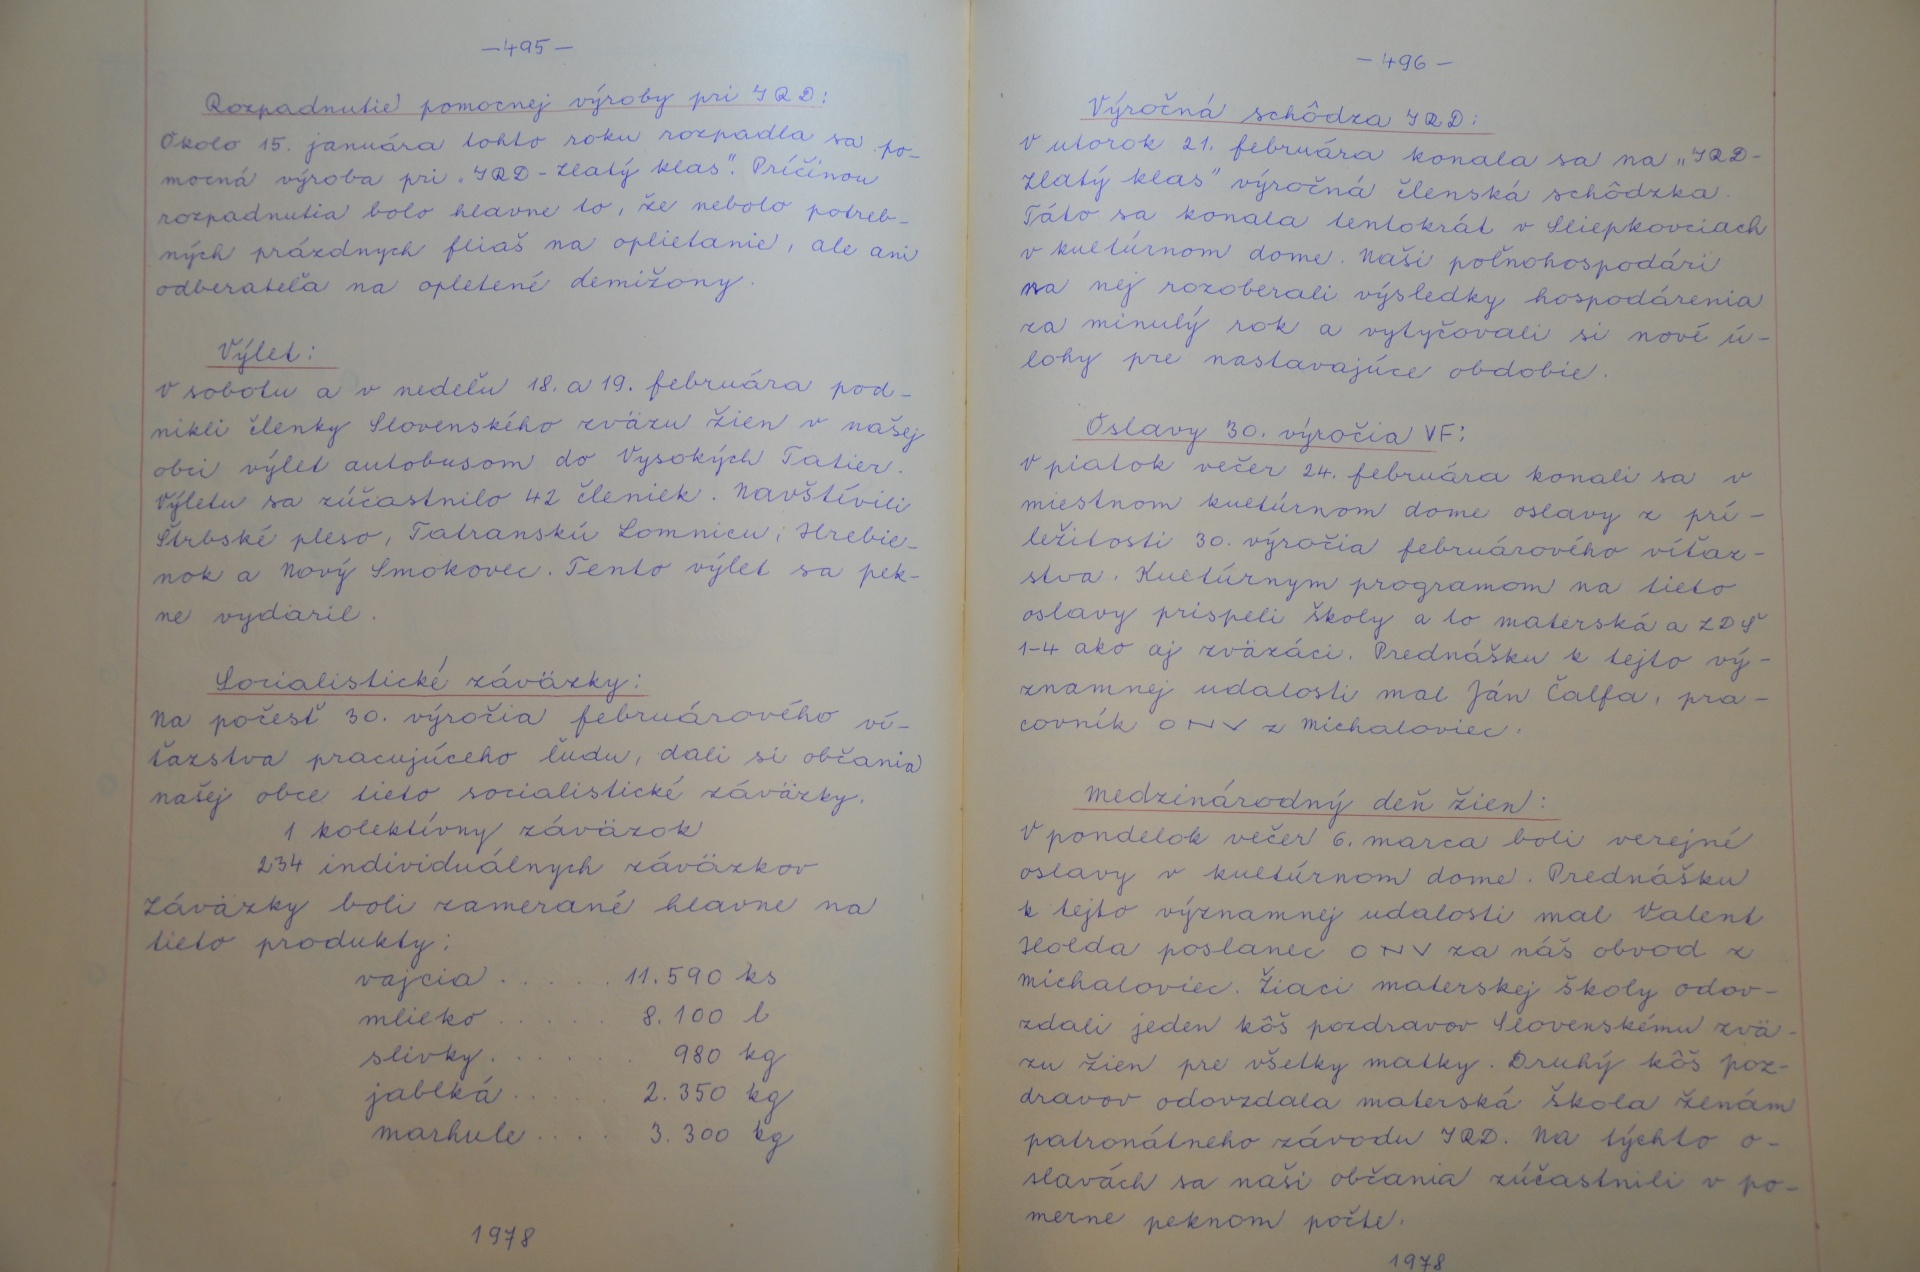 —495—
Rozpadnutie pomocnej výroby pri JRD:
Okolo 15. januára tohto roku rozpadla sa po-
mocná výroba pri „JRD-Zlatý klas". Príčinou
rozpadnutia bolo hlavne to, že nebolo potreb-
ných prázdnych fliaš na oplietanie, ale ani
odberateľa na opletené demižony.
Výlet:
V sobotu a v nedeľu 18. a 19. februára pod-
nikli členky Slovenského zväzu žien v našej
obci výlet autobusom do Vysokých Tatier.
Výletu sa zúčastnilo 42 členiek. Navštívili
Štrbské pleso, Tatranskú Lomnicu, Hrebie-
nok a Nový Smokovec. Tento výlet sa pek-
ne vydaril.
Socialistické záväzky:
Na počesť 30. výročia februárového ví-
ťazstva pracujúceho ľudu, dali si občania
našej obce tieto socialistické záväzky.
1 kolektívny záväzok
234 individuálnych záväzkov
Záväzky boli zamerané hlavne na
tieto produkty:
vajcia . . . . . 11.590 ks
mlieko . . . . . 8.100 l
slivky . . . . . . 980 kg
jablká . . . . . 2.350 kg
marhule . . . . 3.300 kg
1978
—496—
Výročná schôdza JRD:
V utorok 21. februára konala sa na „JRD-
Zlatý klas" výročná členská schôdzka.
Táto sa konala tentokrát v Sliepkovciach
v kultúrnom dome. Naši poľnohospodári
na nej rozoberali výsledky hospodárenia
za minulý rok a vytyčovali si nové ú-
lohy pre nastavajúce obdobie.
Oslavy 30. výročia VF:
V piatok večer 24. februára konali sa v
miestnom kultúrnom dome oslavy z prí-
ležitosti 30. výročia februárového víťaz-
stva. Kultúrnym programom na tieto
oslavy prispeli školy a to materská a ZDŠ
1-4 ako aj zväzáci. Prednášku k tejto vý-
znamnej udalosti mal Ján Čalfa, pra-
covník ONV z Michaloviec.
Medzinárodný deň žien:
V pondelok večer 6. marca boli verejné
oslavy v kultúrnom dome. Prednášku
k tejto významnej udalosti mal Valent
Holda poslanec ONV za náš obvod z
Michaloviec. Žiaci materskej školy odov-
zdali jeden kôš pozdravov Slovenskému zvä-
zu žien pre všetky matky. Druhý kôš poz-
dravov odovzdala materská škola ženám
patronátneho závodu JRD. Na týchto o-
slavách sa naši občania zúčastnili v po-
merne peknom počte.
1978